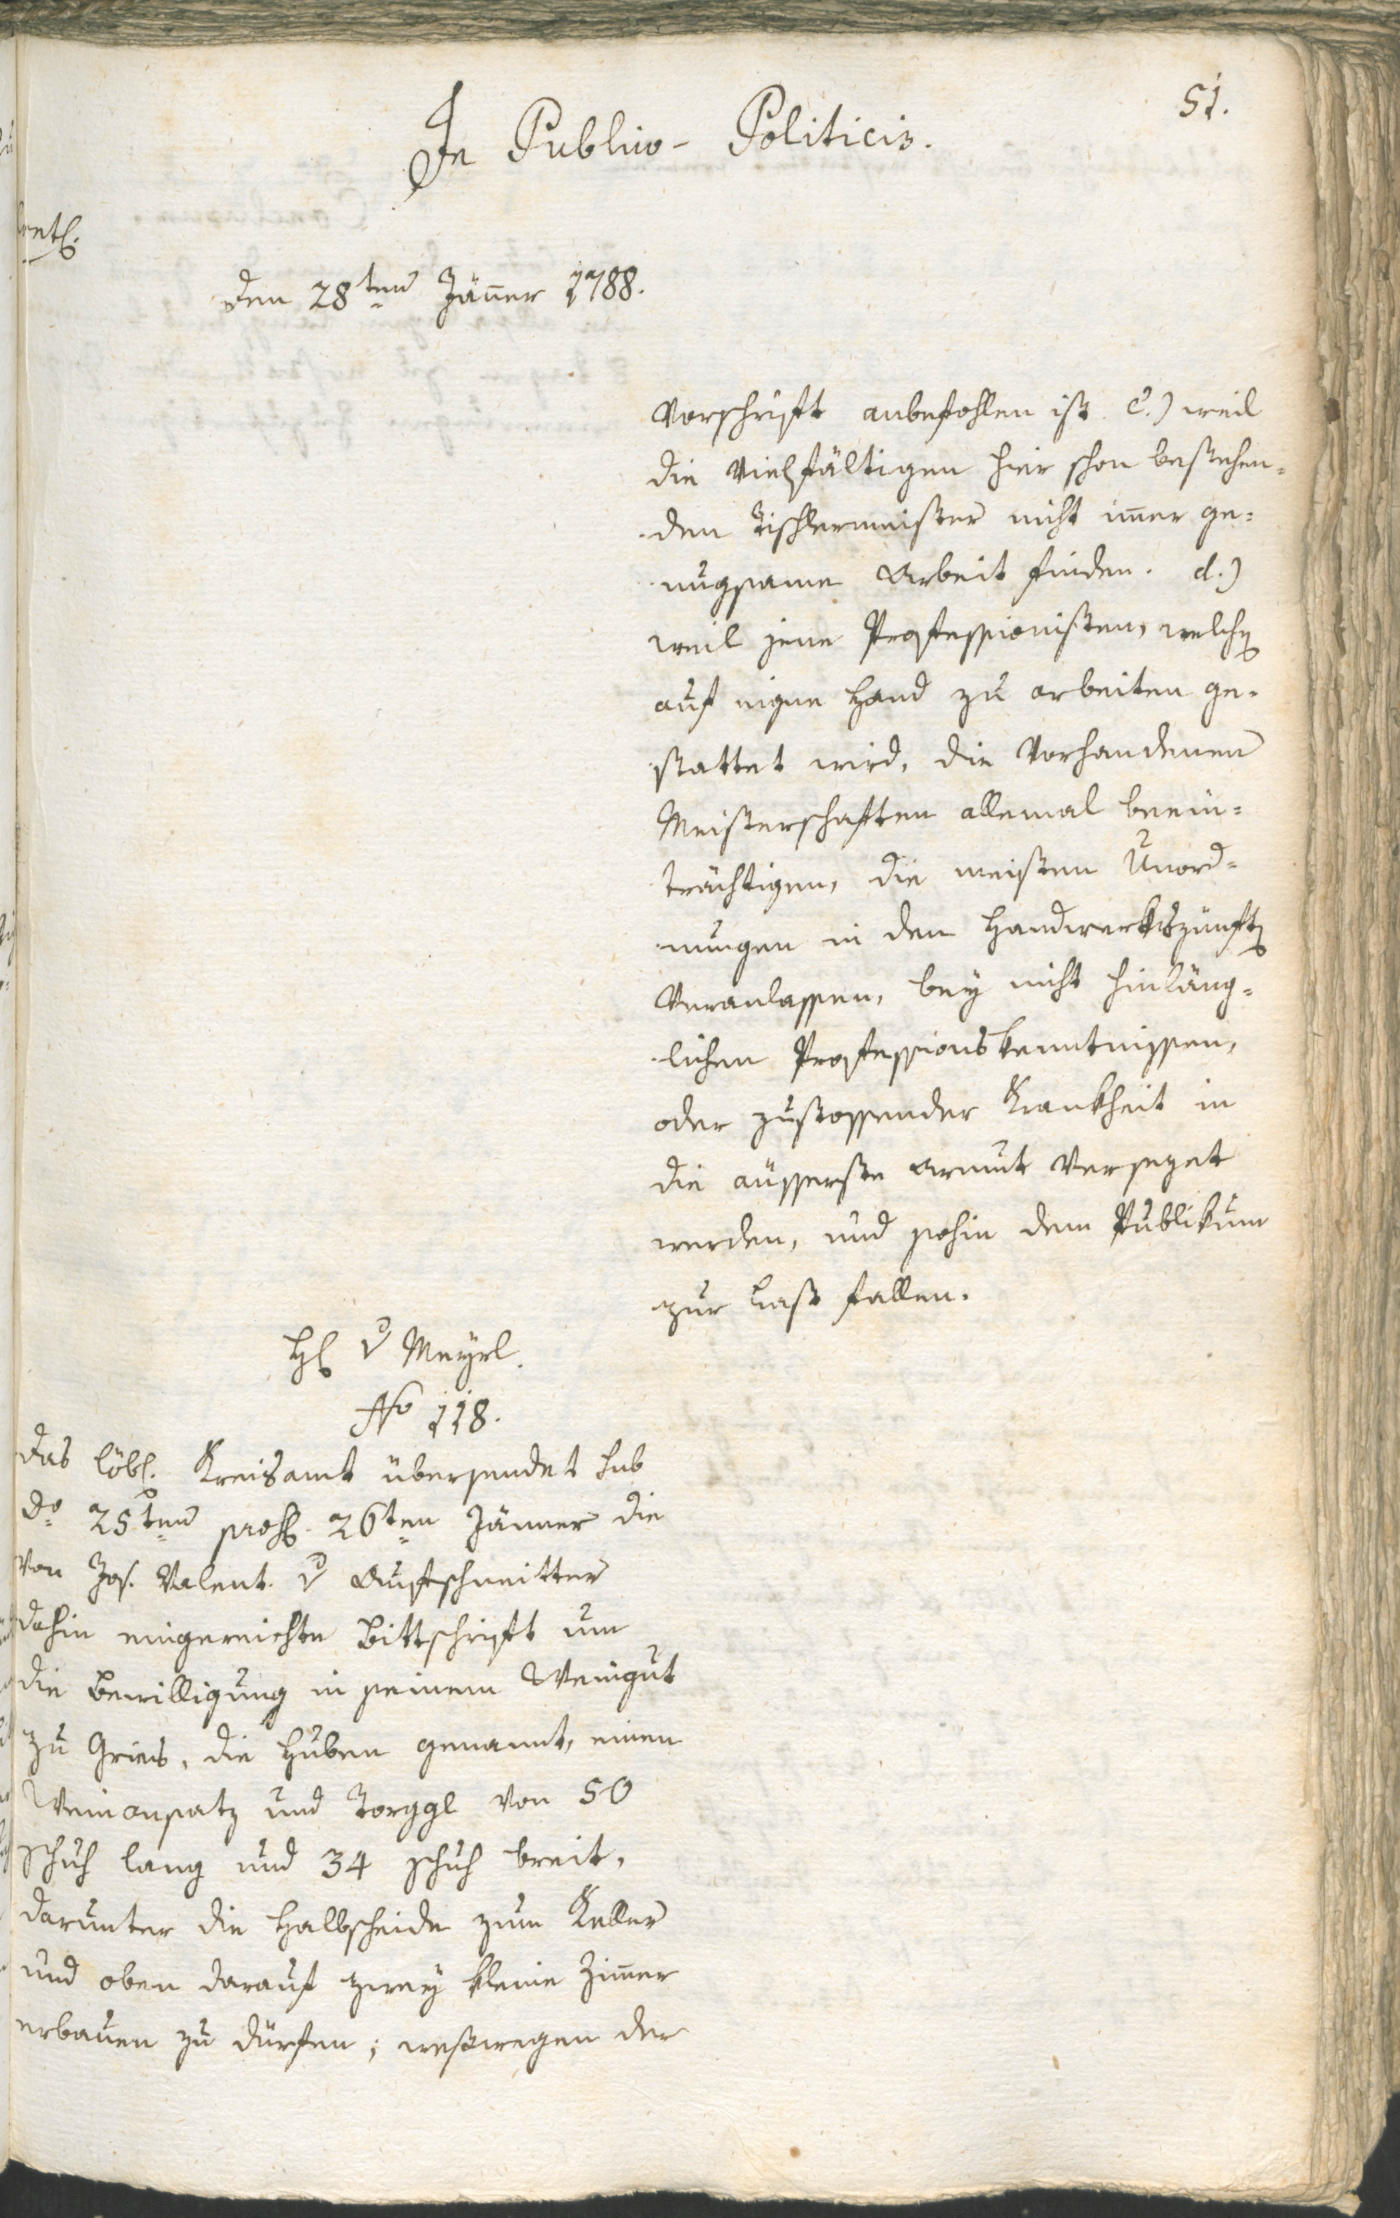 51.
In Publico-Politicis.
den 28ten Jäner 1788.
Vorschrift anbefohlen ist c.) weil
die Vielfältigen hier schon bestehen-
den Tischlermeister nicht imer ge-
nugsame Arbeit finden. d.)
weil jene Professionisten, welchen
auf eigne Hand zu arbeiten ge-
stattet wird, die Vorhandenen
Meisterschaften allemal beein-
trächtigen, die meisten Unord-
nungen in den Handwerkszünften
Veranlassen, bey nicht hinläng-
lichen Professionskenntnissen,
oder zustossender Krankheit in
die äusserste Armut Versezet
werden, und sohin dem Publikum
zur Last fallen.
H v Mayrl.
No 118.
Das löbl. Kreisamt übersendet sub
do 25ten pros. 26ten Jänner die
Von Jos. Valent. v Aufschneitter
dahin eingereichte Bittschrift um
die Bewilligung in seinem Weingut
zu Gries, die Huben genannt, einen
Weinansatz und Torggl von 50
Schuh lang und 34 Schuh breit,
darunter die Halbscheide zum Keller
und oben darauf zwey kleine Zimer
erbauen zu dürfen; weswegen der